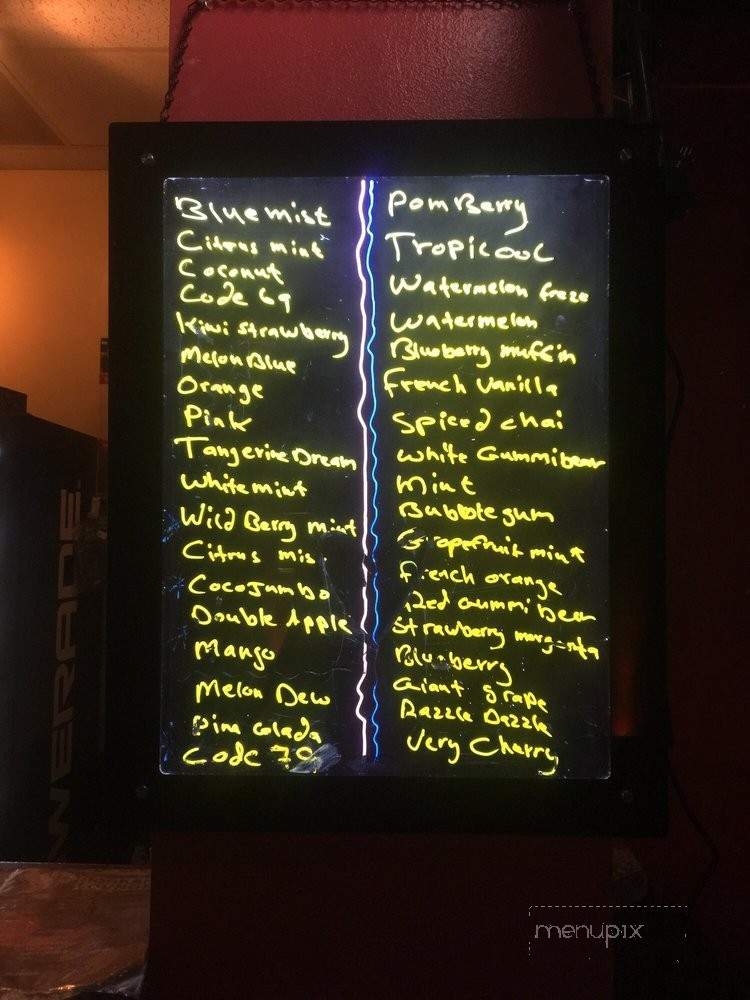 Blue mist
Citrus mint
Coconut
Code 69
Kiwi strawberry
Melon Blue
Orange
Pink
Tangerine Dream
White mint
Wild Berry mint
Citrus mis
CocoJumbo
Double Apple
Mango
Melon Dew
Pina Colada
Code 79
Pom Berry
Tropicool
Watermelon freze
Watermelon
Blueberry muffin
French Vanilla
Spiced chai
White Gummibear
Mint
Bubble gum
Grapefruit mint
French orange
Red Gummi bear
Strawberry margarita
Blueberry
Giant grape
Razzle Dazzle
Very Cherry
WERADE
menupix